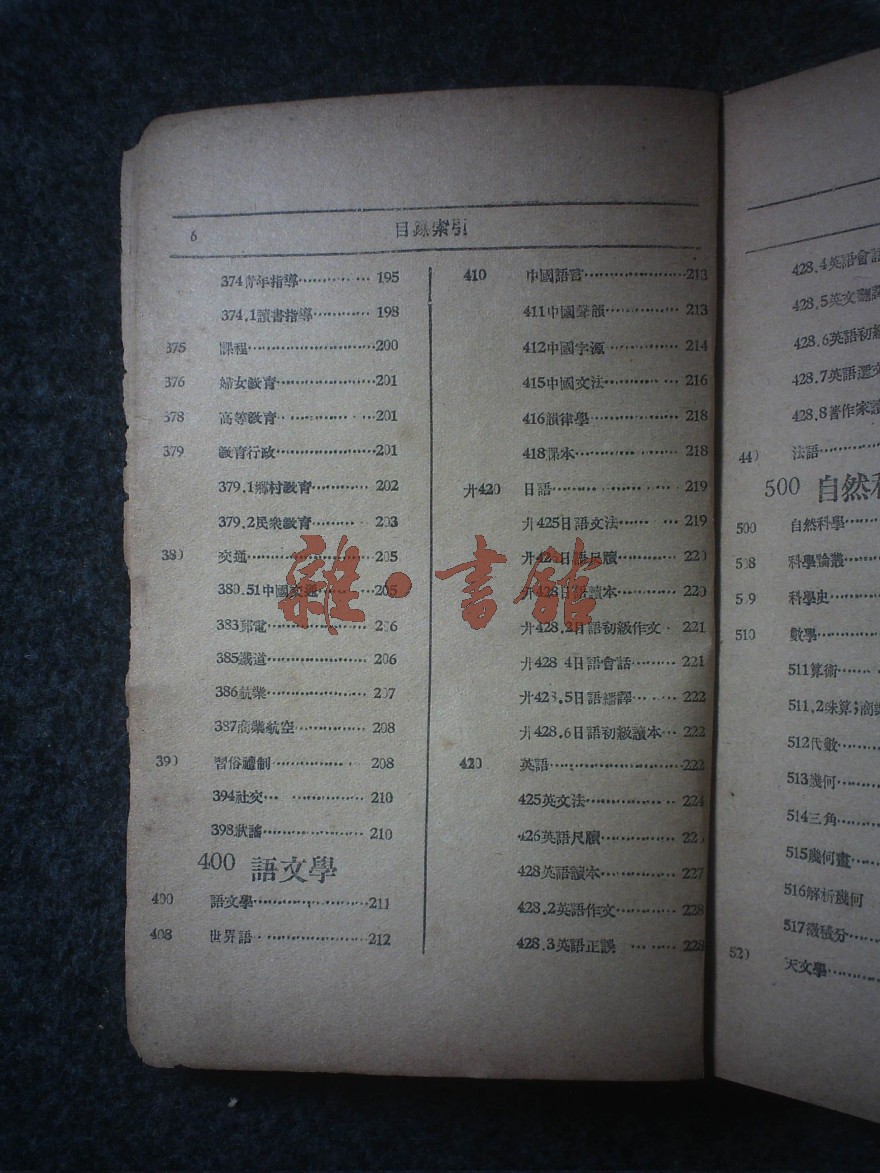 6
目錄索引
374青年指導 195
374.1讀書指導 198
375 課程 200
376 婦女教育 201
378 高等教育 201
379 教育行政 201
379.1鄉村教育 202
379.2民衆教育 203
380 交通 205
380.51中國交通 205
383郵電 206
385鐵道 206
386航業 207
387商業航空 208
390 習俗禮制 208
394社交 210
398歌謠 210
400 語文學
400 語文學 211
408 世界語 212
410 中國語言 213
411中國聲韻 213
412中國字源 214
415中國文法 216
416韻律學 218
418課本 218
廾420 日語 219
廾425日語文法 219
廾426日語尺牘 220
廾428日語讀本 220
廾428.2日語初級作文 221
廾428 4日語會話 221
廾428.5日語繙譯 222
廾428.6日語初級讀本 222
420 英語 222
425英文法 224
426英語尺牘
428英語讀本 227
428.2英語作文 228
428.3英語正誤 228
428.4英語會話
428.5英文翻譯
428.6英語初級
428.7英語選文
428.8著作家讀
440 法語
500 自然科
500 自然科學
508 科學論叢
509 科學史
510 數學
511算術
511.2珠算;商
512代數
513幾何
514三角
515幾何畫
516解析幾何
517微積分
520 天文學
雜·書館